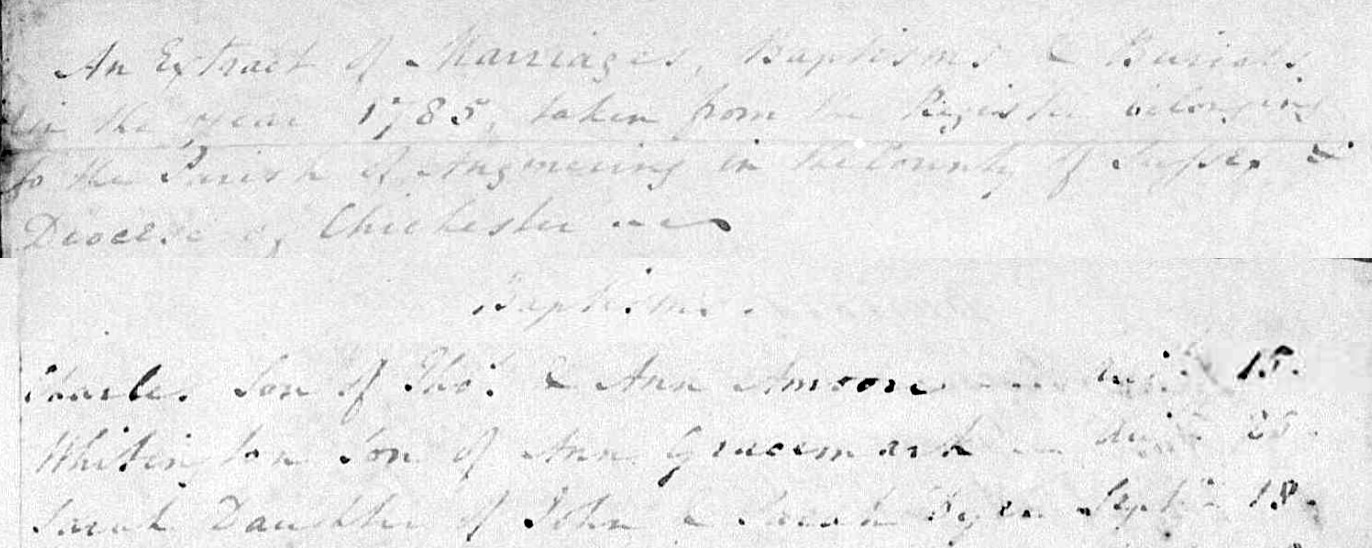 An Extract of Marriages, Baptisms & Burials
in the year 1785, taken from the Register belonging
to the Parish of Angmering in the County of Sussex &
Diocese of Chichester
Baptisms
Charles Son of Thos. & Ann Amoore Augst. 15.
Whitington Son of Ann Gracemark Augst. 25.
Sarah Daughter of John & Sarah Septr. 18.